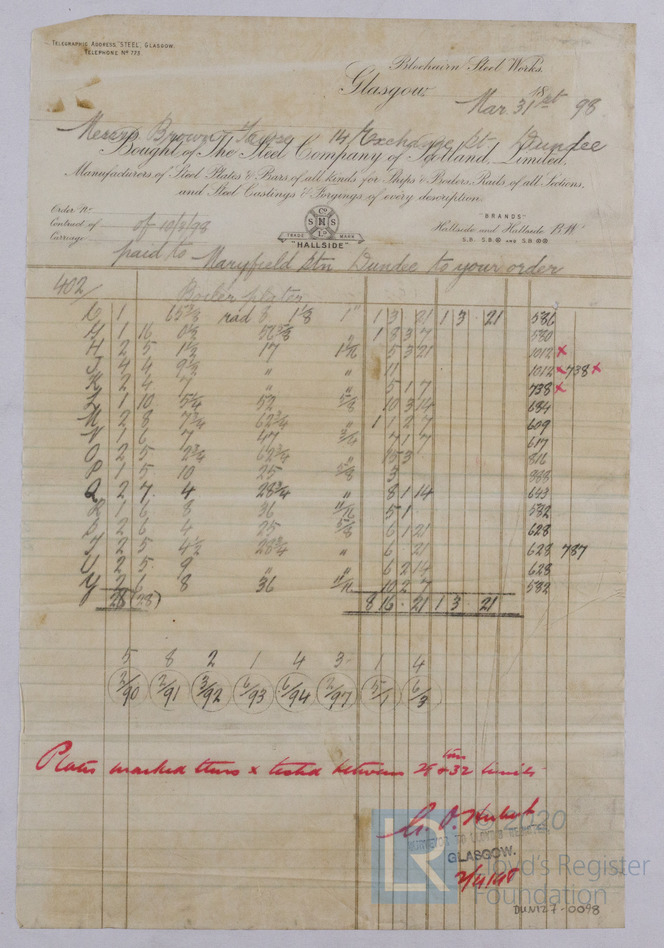 TELEGRAPHIC ADDRESS "STEEL, GLASGOW.
TELEPHONE Nº 773.
Blochairn Steel Works.
Glasgow Mar 31st 98
Messrs Brown & 14 Exchange St Dundee
Bought of The Steel Company of Scotland, Limited,
Manufacturers of Steel Plates & Bars of all kinds for Ships & Boilers, Rails of all Sections,
and Steel Castings & Forgings of every description.
Order No
Contract of
Carriage
TRADE MARK
"HALLSIDE"
"BRANDS"
Hallside and Hallside B.W.
paid to Maryfield Stn Dundee to your order
402/ Boiler plates
G 1 65 3/8 rad & 1 1/8 1" 1 3 21 1 3 . 21 586
H 1 16 56 5/8 1 8 3 7 580
H 2 5 1 1/2 17 5 3 21 1012 x
J 4 4 9 1/2 " " 11 1012 x 738 x
K 2 4 7 " " 5 1 7 738 x
L 1 10 5 1/4 52 5/8 10 3 14 684
M 2 8 7 3/4 62 3/4 " 1 1 2 7 609
N 1 6 7 47 3/4 7 1 7 617
O 2 5 2 3/4 62 3/4 " 15 3 816
P 1 5 10 25 5/8 3
Q 2 7 4 28 3/4 " 8 1 14 643
R 1 6 8 36 11/16 5 1 582
S 2 6 4 25 5/8 6 1 21 628
T 2 5 4 1/2 28 3/4 " 6 21 628 787
U 2 5 9 " " 6 2 14 628
Y 2 6 8 36 11/16 10 2 7 582
28 (28) 8 16 . 21 1 3 . 21
5 8 2 1 4 3 1 4
2/90 2/91 3/92 6/93 6/94 2/97 5/1 6/3
Plates marked thus x tested between 28 & 32 tons limits
© 2020
SURVEYOR TO LLOYD'S REGISTER
GLASGOW.
2/4/98
LR
Lloyd's Register
Foundation
DUN127-0098